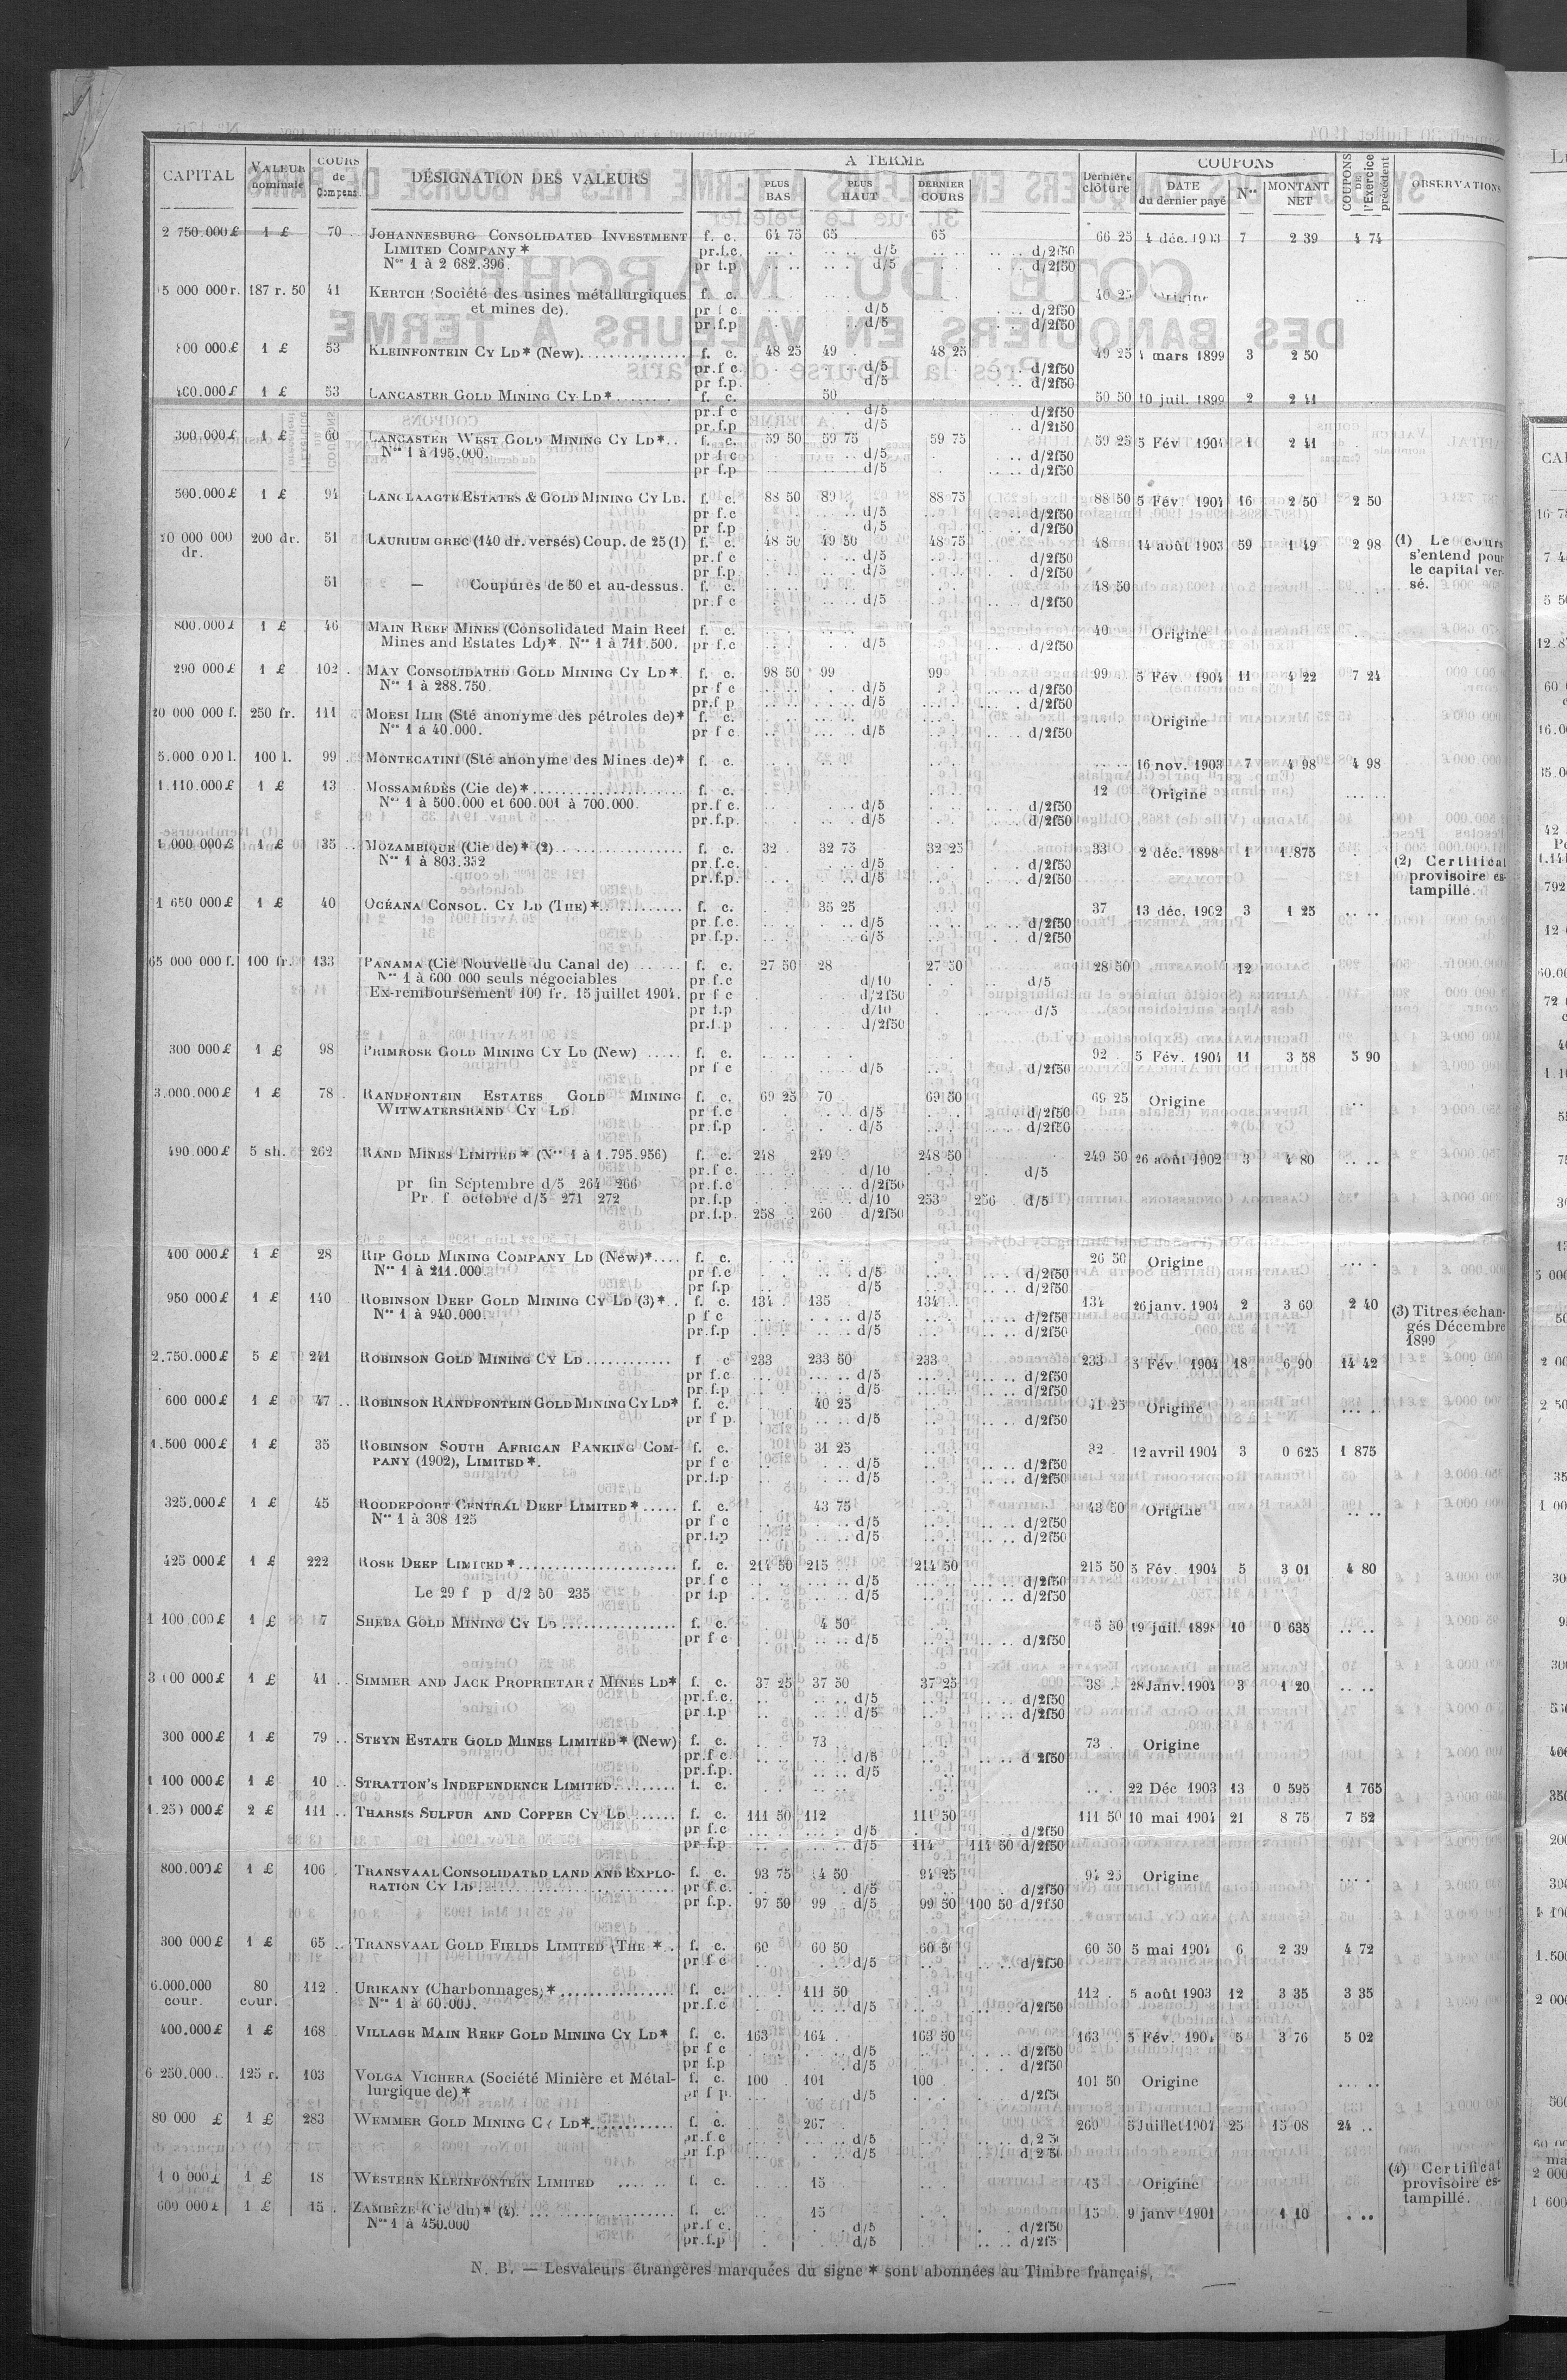 CAPITAL VALEUR nominale COURS de Compens. DÉSIGNATION DES VALEURS A TERME PLUS BAS PLUS HAUT DERNIER COURS Dernière clôture COUPONS DATE du dernier payé Nos MONTANT NET COUPONS DE l'Exercice précédent OBSERVATIONS
2 750.000 £ 1 £ 70 JOHANNESBURG CONSOLIDATED INVESTMENT f. c. 64 75 65 65 66 25 4 déc. 1903 7 2 39 4 74
LIMITED COMPANY * pr.f.c. d/5 d/2f50
Nos 1 à 2 682.396. pr f.p d/5 d/2f50
15 000 000 r. 187 r. 50 41 KERTCH (Société des usines métallurgiques f. c. 40 25 Origine
et mines de). pr f c d/5 d/2f50
pr.f.p d/5 d/2f50
800 000 £ 1 £ 53 KLEINFONTEIN CY LD* (New) f. c. 48 25 49 48 25 49 25 4 mars 1899 3 2 50
pr.f c. d/5 d/2f50
pr f.p. d/5 d/2f50
400.000 £ 1 £ 53 LANCASTER GOLD MINING CY LD* f. c. 50 50 50 10 juil. 1899 2 2 41
pr.f c d/5 d/2f50
pr.f.p d/5 d/2f50
300,000 £ 1 £ 60 LANCASTER WEST GOLD MINING CY LD* f. c. 59 50 59 75 59 75 59 25 5 Fév 1904 1 2 41
Nos 1 à 195.000. pr f c d/5 d/2f50
pr f.p d/5 d/2f50
500.000 £ 1 £ 94 LANGLAAGTE ESTATES & GOLD MINING CY LD. f. c. 88 50 89 88 75 88 50 5 Fév 1904 16 2 50 2 50
pr f.c d/5 d/2f50
pr f.p d/5 d/2f50
200 dr. 51 LAURIUM GREC (140 dr. versés) Coup. de 25 (1) f. c. 48 50 49 50 48 75 48 14 août 1903 59 1 49 2 98 (1) Le cours
dr. pr.f c d/5 d/2f50 s'entend pour
pr f.p d/5 d/2f50 le capital ver-
51 — Coupures de 50 et au-dessus. f. c. 48 50 sé.
pr.f c d/5 d/2f50
800.000 £ 1 £ 46 MAIN REEF MINES (Consolidated Main Reef f. c. 40 Origine
Mines and Estates Ld)* Nos 1 à 711.500. pr f.c d/5 d/2f50
290 000 £ 1 £ 102 MAY CONSOLIDATED GOLD MINING CY LD* f. c. 98 50 99 99 99 5 Fév. 1904 11 4 22 7 24
Nos 1 à 288.750. pr f c d/5 d/2f50
pr.f p d/5 d/2f50
20 000 000 f. 250 fr. 111 MOESI ILIR (Sté anonyme des pétroles de)* f. c. Origine
Nos 1 à 40.000. pr f c d/5 d/2f50
5.000 000 l. 100 l. 99 MONTECATINI (Sté anonyme des Mines de)* f. c. 16 nov. 1903 7 4 98 4 98
1.110.000 £ 1 £ 13 MOSSAMÉDÈS (Cie de)* f. c. 12 Origine
Nos 1 à 500.000 et 600.001 à 700.000. pr.f c. d/5 d/2f50
pr.f.p. d/5 d/2f50
1 000 000 £ 1 £ 35 MOZAMBIQUE (Cie de)* (2) f. c. 32 32 75 32 25 33 2 déc. 1898 1 1.875
Nos 1 à 803.332 pr.f.c. d/5 d/2f50 (2) Certificat
pr.f.p. d/5 d/2f50 provisoire es-
tampillé.
1 650 000 £ 1 £ 40 OCÉANA CONSOL. CY LD (THE)* f. c. 35 25 37 13 déc. 1902 3 1 25
pr f.c. d/5 d/2f50
pr.f.p. d/5 d/2f50
65 000 000 f. 100 fr. 133 PANAMA (Cie Nouvelle du Canal de) f. c. 27 50 28 27 50 28 50 12
Nos 1 à 600 000 seuls négociables pr f.c d/10 d/5
Ex-remboursement 100 fr. 15 juillet 1904. pr f c d/2f50
pr f.p d/10 d/5
pr.f.p d/2f50
300 000 £ 1 £ 98 PRIMROSE GOLD MINING CY LD (New) f. c. 92 5 Fév. 1904 11 3 58 5 90
pr f c d/5 d/2f50
3.000.000 £ 1 £ 78 RANDFONTEIN ESTATES GOLD MINING f. c. 69 25 70 69 50 69 25 Origine
WITWATERSRAND CY LD pr f.c d/5 d/2f50
pr f.p d/5 d/2f50
490.000 £ 5 sh. 262 RAND MINES LIMITED * (Nos 1 à 1.795.956) f. c. 248 249 248 50 249 50 26 août 1902 3 4 80
pr.f c. d/10 d/5
pr fin Septembre d/5 264 266 pr.f.c d/2f50
Pr. f octobre d/5 271 272 pr.f.p d/10 253 256 d/5
pr.f.p. 258 260 d/2f50
400 000 £ 1 £ 28 RIP GOLD MINING COMPANY LD (New)* f. c. 26 50 Origine
Nos 1 à 211.000. pr f.c d/5 d/2f50
pr f.p d/5 d/2f50
950 000 £ 1 £ 140 ROBINSON DEEP GOLD MINING CY LD (3)* f. c. 134 135 134 134 26 janv. 1904 2 3 60 2 40 (3) Titres échan-
Nos 1 à 940.000. p f c d/5 d/2f50 gés Décembre
pr.f.p d/5 d/2f50 1899
2.750.000 £ 5 £ 241 ROBINSON GOLD MINING CY LD f c 233 233 50 233 233 5 Fév. 1904 18 6 90 14 42
pr f.c d/5 d/2f50
pr.f.p d/5 d/2f50
600 000 £ 1 £ 47 ROBINSON RANDFONTEIN GOLD MINING CY LD* f. c. 40 25 41 25 Origine
pr f p. d/5 d/2f50
1.500 000 £ 1 £ 35 ROBINSON SOUTH AFRICAN BANKING COM- f. c. 31 25 32 12 avril 1904 3 0 625 1 875
PANY (1902), LIMITED *. pr f c d/5 d/2f50
pr.f.p d/5 d/2f50
325.000 £ 1 £ 45 ROODEPOORT CENTRAL DEEP LIMITED * f. c. 43 75 43 50 Origine
Nos 1 à 308 125 pr f c d/5 d/2f50
pr.f.p d/5 d/2f50
425 000 £ 1 £ 222 ROSE DEEP LIMITED * f. c. 214 50 215 214 50 215 50 5 Fév. 1904 5 3 01 4 80
pr f c d/5 d/2f50
Le 29 f p d/2 50 235 pr f.p d/5 d/2f50
1 100 000 £ 1 £ 7 SHEBA GOLD MINING CY LD f. c. 4 50 5 50 19 juil. 1898 10 0 635
pr f c d/5 d/2f50
3 000 000 £ 1 £ 41 SIMMER AND JACK PROPRIETARY MINES LD* f. c. 37 25 37 50 37 25 38 28 Janv. 1904 3 1 20
pr.f.c. d/5 d/2f50
pr f.p d/5 d/2f50
300 000 £ 1 £ 79 STEYN ESTATE GOLD MINES LIMITED * (New) f. c. 73 73 Origine
pr.f c. d/5 d 2f50
pr.f.p. d/5
1 100 000 £ 1 £ 10 STRATTON'S INDEPENDENCE LIMITED f. c. 22 Déc 1903 13 0 595 1 765
1.250 000 £ 2 £ 111 THARSIS SULFUR AND COPPER CY LD f. c. 111 50 112 111 50 111 50 10 mai 1904 21 8 75 7 52
pr f.c d/5 d/2f50
pr f.p d/5 114 114 50 d/2f50
800.000 £ 1 £ 106 TRANSVAAL CONSOLIDATED LAND AND EXPLO- f. c. 93 75 4 50 94 25 94 25 Origine
RATION CY LD pr f.c. d/5 d/2f50
pr f.p. 97 50 99 d/5 99 50 100 50 d/2f50
300 000 £ 1 £ 65 TRANSVAAL GOLD FIELDS LIMITED (THE * f. c. 60 60 50 60 50 60 50 5 mai 1904 6 2 39 4 72
pr f c d/5 d/2f50
6.000.000 80 112 URIKANY (Charbonnages)* f. c. 111 50 112 5 août 1903 12 3 35 3 35
cour. cour. Nos 1 à 60.000. pr.f.c d/5 d/2f50
400.000 £ 1 £ 168 VILLAGE MAIN REEF GOLD MINING CY LD* f. c. 163 164 163 50 163 5 Fév. 1904 5 3 76 5 02
pr f c d/5 d/2f50
pr f.p d/5 d/2f50
6 250.000 125 r. 103 VOLGA VICHERA (Société Minière et Métal- f. c. 100 101 100 101 50 Origine
lurgique de)* pr f p. d/5 d/2f50
80 000 £ 1 £ 283 WEMMER GOLD MINING CY LD* f. c. 267 269 5 Juillet 1904 25 15 08 24
pr.f.c d/5 d/2 50
pr f.p d/5 d/2 50
1 £ 18 WESTERN KLEINFONTEIN LIMITED f. c. 15 15 Origine (4) Certificat
provisoire es-
600 000 £ 1 £ 15 ZAMBÈZE (Cie du)* (4). f. c. 15 15 9 janv 1901 1 10 tampillé.
Nos 1 à 450.000 pr.f c. d/5 d/2f50
pr.f.p d/5 d/2f5
N. B. — Les valeurs étrangères marquées du signe * sont abonnées au Timbre français.